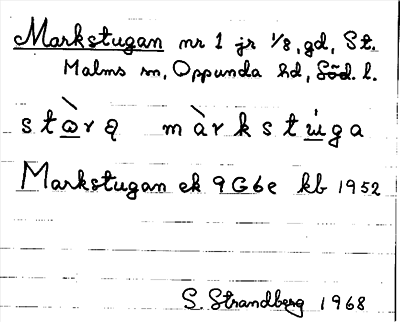 Markstugan nr 1 jr 1/8, gd, St.
Malms sn, Oppunda hd, Söd. l.
stò̱rą màrkstu̱̇ga
Markstugan ek 9G6e kb 1952
S. Strandberg 1968